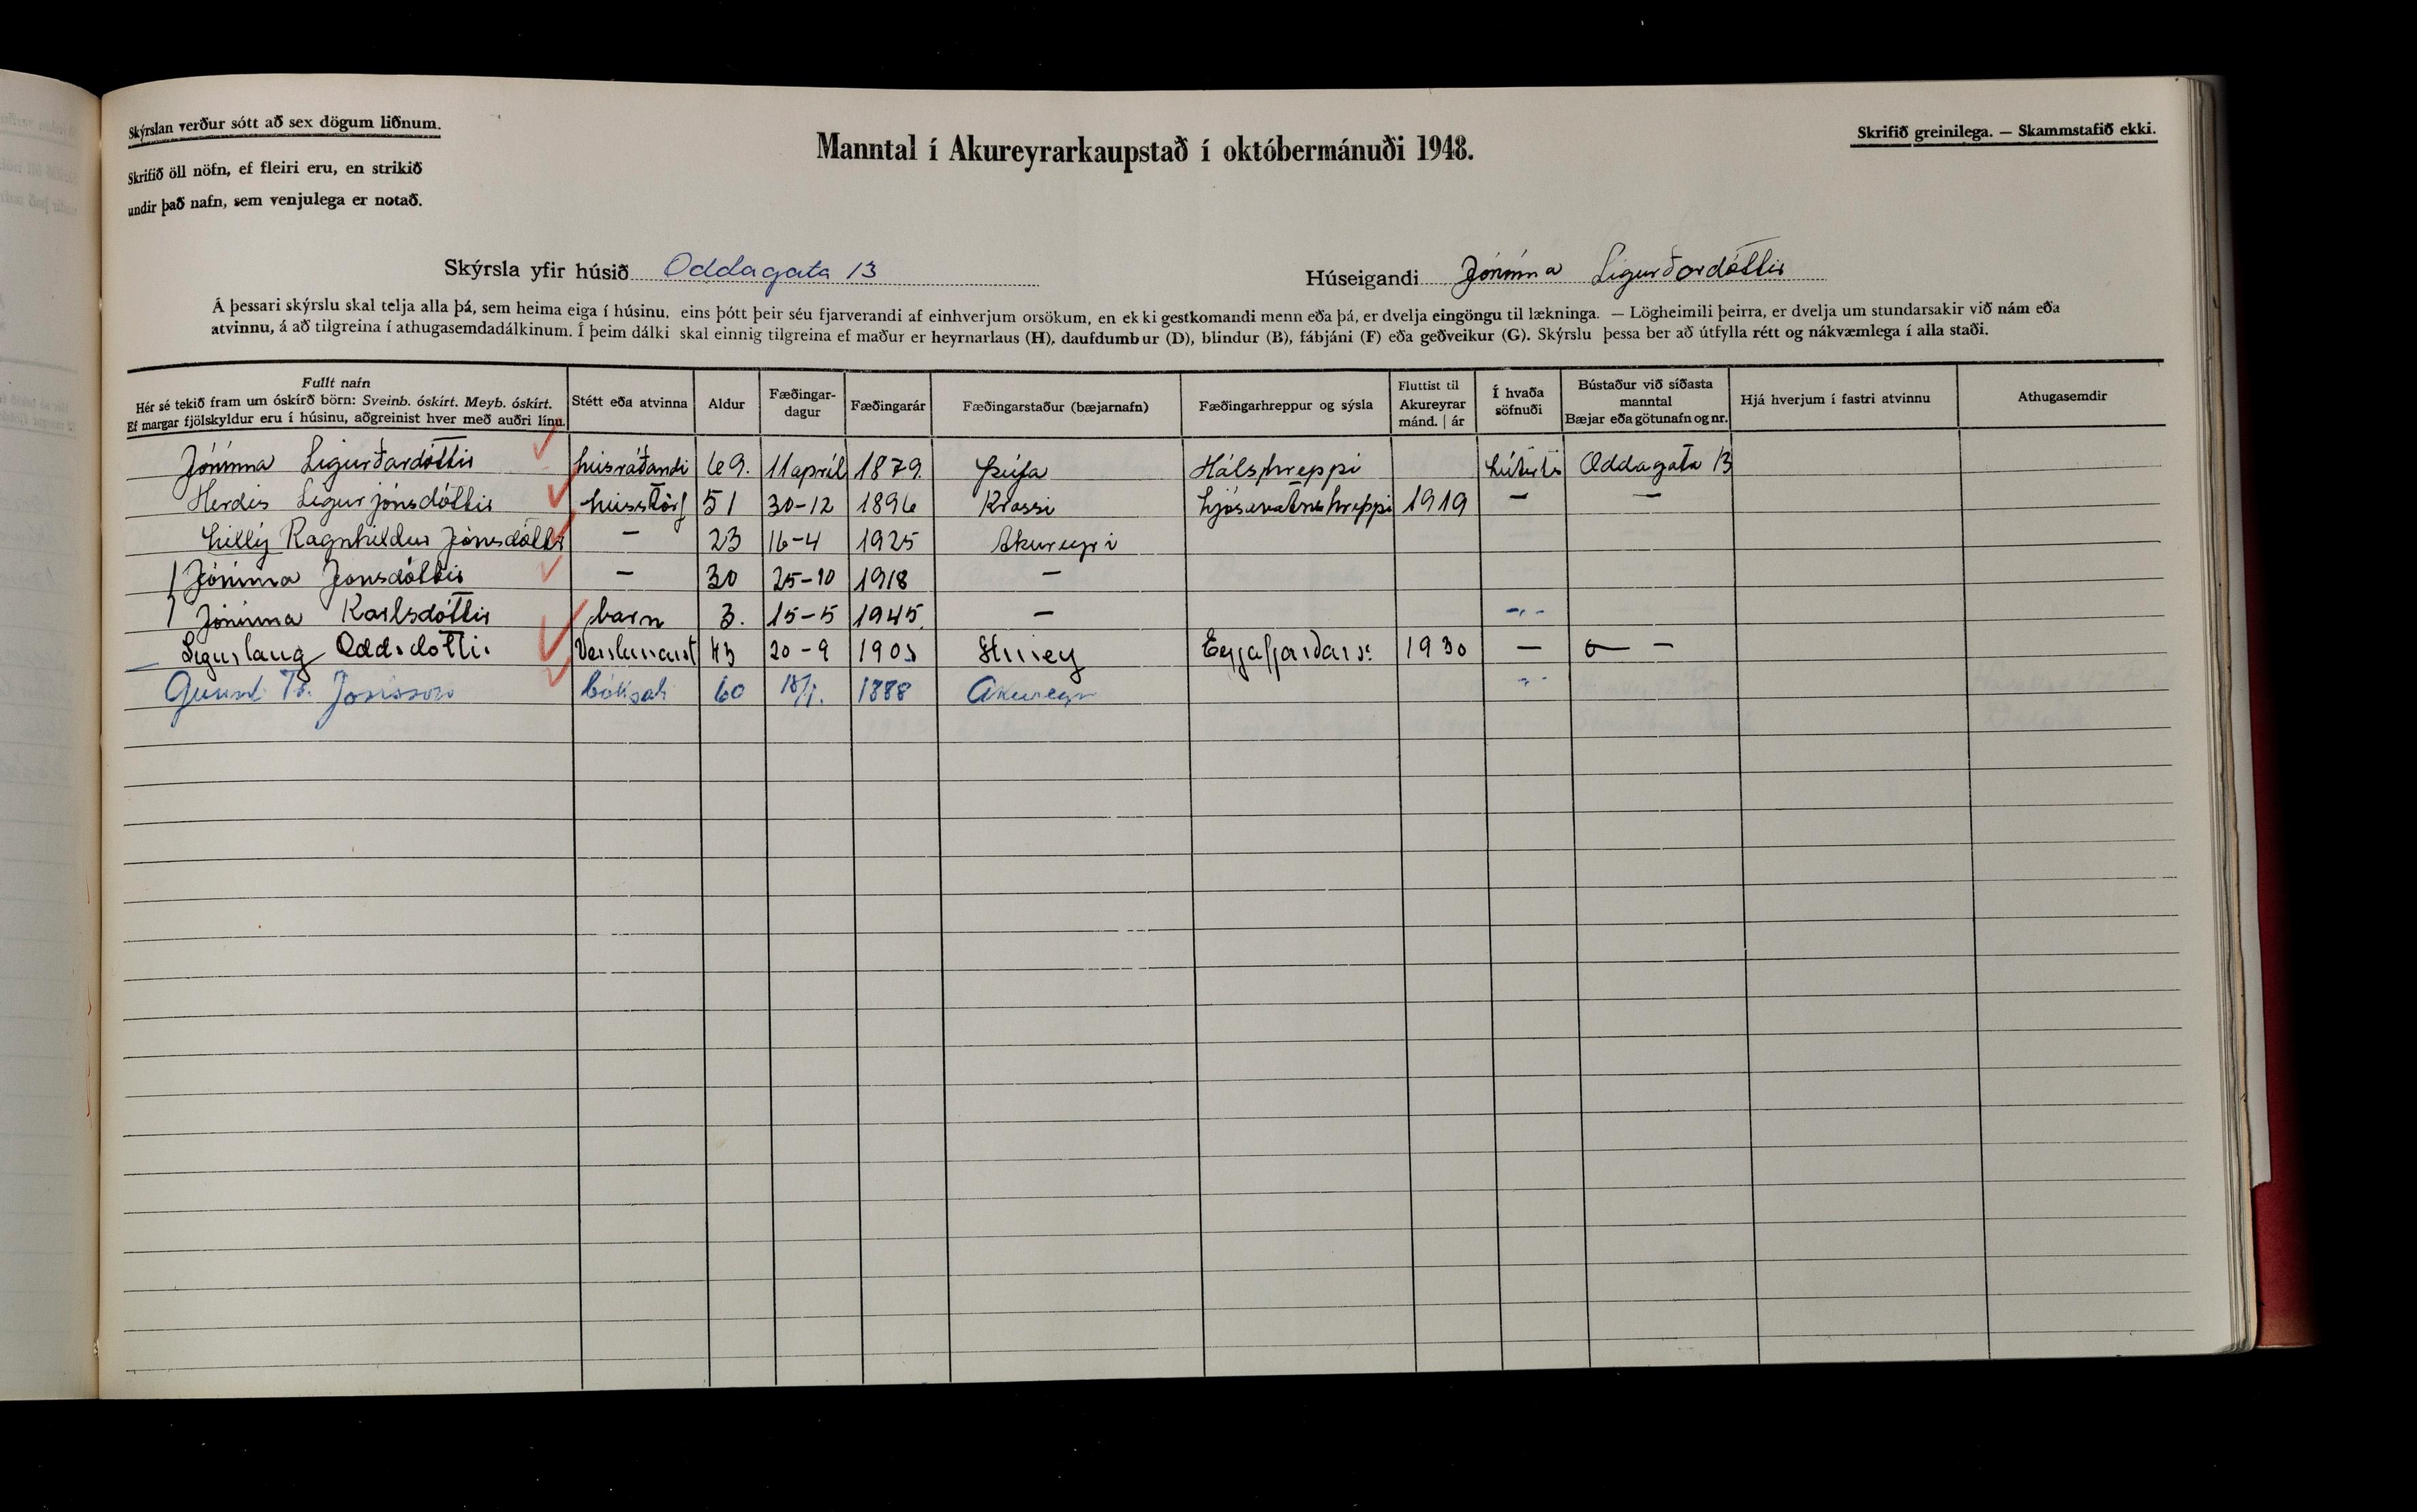 Skýrslan verður sótt að sex dögum liðnum.
Skrifið öll nöfn, ef fleiri eru, en strikið
undir það nafn, sem venjulega er notað.
Manntal í Akureyrarkaupstað í októbermánuði 1948.
Skrifið greinilega. — Skammstafið ekki.
Skýrsla yfir húsið Oddagata 13
Húseigandi Jónína Sigurðardóttir
Á þessari skýrslu skal telja alla þá, sem heima eiga í húsinu, eins þótt þeir séu fjarverandi af einhverjum orsökum, en ekki gestkomandi menn eða þá, er dvelja eingöngu til lækninga. — Lögheimili þeirra, er dvelja um stundarsakir við nám eða
atvinnu, á að tilgreina í athugasemdadálkinum. Í þeim dálki skal einnig tilgreina ef maður er heyrnarlaus (H), daufdumbur (D), blindur (B), fábjáni (F) eða geðveikur (G). Skýrslu þessa ber að útfylla rétt og nákvæmlega í alla staði.
Fullt nafn
Hér sé tekið fram um óskírð börn: Sveinb. óskírt. Meyb. óskírt.
Ef margar fjölskyldur eru í húsinu, aðgreinist hver með auðri línu.
Stétt eða atvinna
Aldur
Fæðingar-
dagur
Fæðingarár
Fæðingarstaður (bæjarnafn)
Fæðingarhreppur og sýsla
Fluttist til
Akureyrar
mánd. | ár
Í hvaða
söfnuði
Bústaður við síðasta
manntal
Bæjar eða götunafn og nr.
Hjá hverjum í fastri atvinnu
Athugasemdir
Jónína Sigurðardóttir húsráðandi 69. 11 apríl 1879. Þúfa Hálshreppi Oddagata 13
Herdís Sigurjónsdóttir hússtörf 51 30-12 1896 Krossi Ljósavatnshreppi 1919 — —
Lillý Ragnhildur Jónsdóttir — 23 16-4 1925 Akureyri
Jónína Jónsdóttir — 30 25-10 1918 —
Jónína Karlsdóttir barn 3. 15-5 1945. — -„-
Sigurlaug Oddsdóttir 43 20-9 1905 Hrísey Eyjafjarðars. 1930 — —
Gunnl. Tr. Jónsson bóksali 60 18/1. 1888 Akureyri -"-